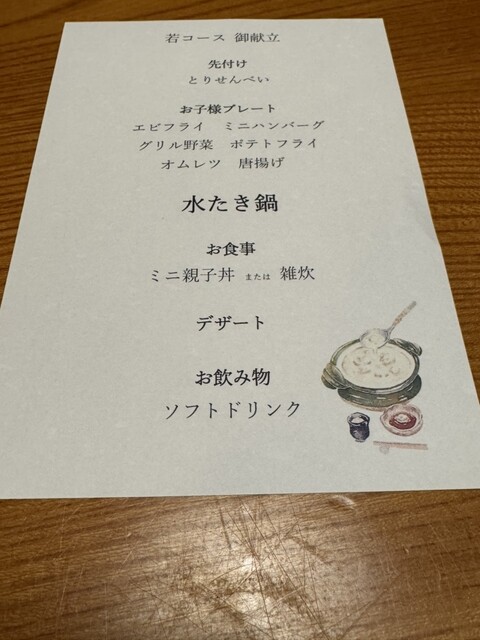 若コース 御献立
先付け
とりせんべい
お子様プレート
エビフライ ミニハンバーグ
グリル野菜 ポテトフライ
オムレツ 唐揚げ
水たき鍋
お食事
ミニ親子丼 または 雑炊
デザート
お飲み物
ソフトドリンク